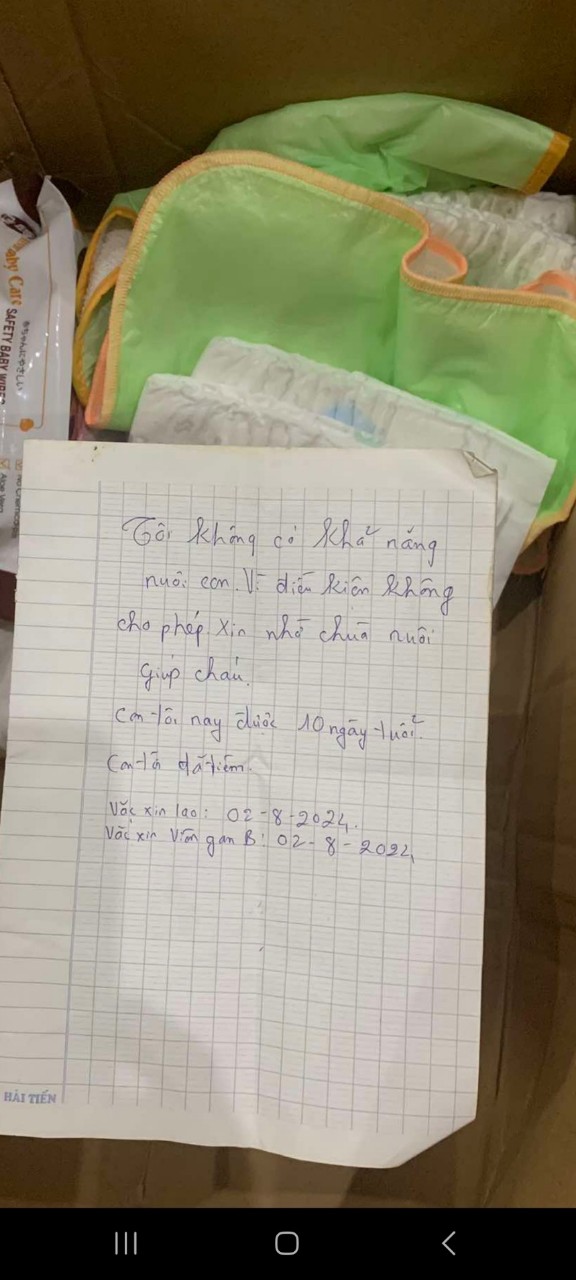 Baby Care
SAFETY BABY WIPES
赤ちゃんにやさしい
Aloe Vera
Tôi không có khả năng
nuôi con. Vì điều kiện không
cho phép. Xin nhờ chùa nuôi
giúp cháu.
Con tôi nay được 10 ngày tuổi.
Con tôi đã tiêm.
Vắc xin lao: 02-8-2024.
Vắc xin Viêm gan B: 02-8-2024
HẢI TIẾN